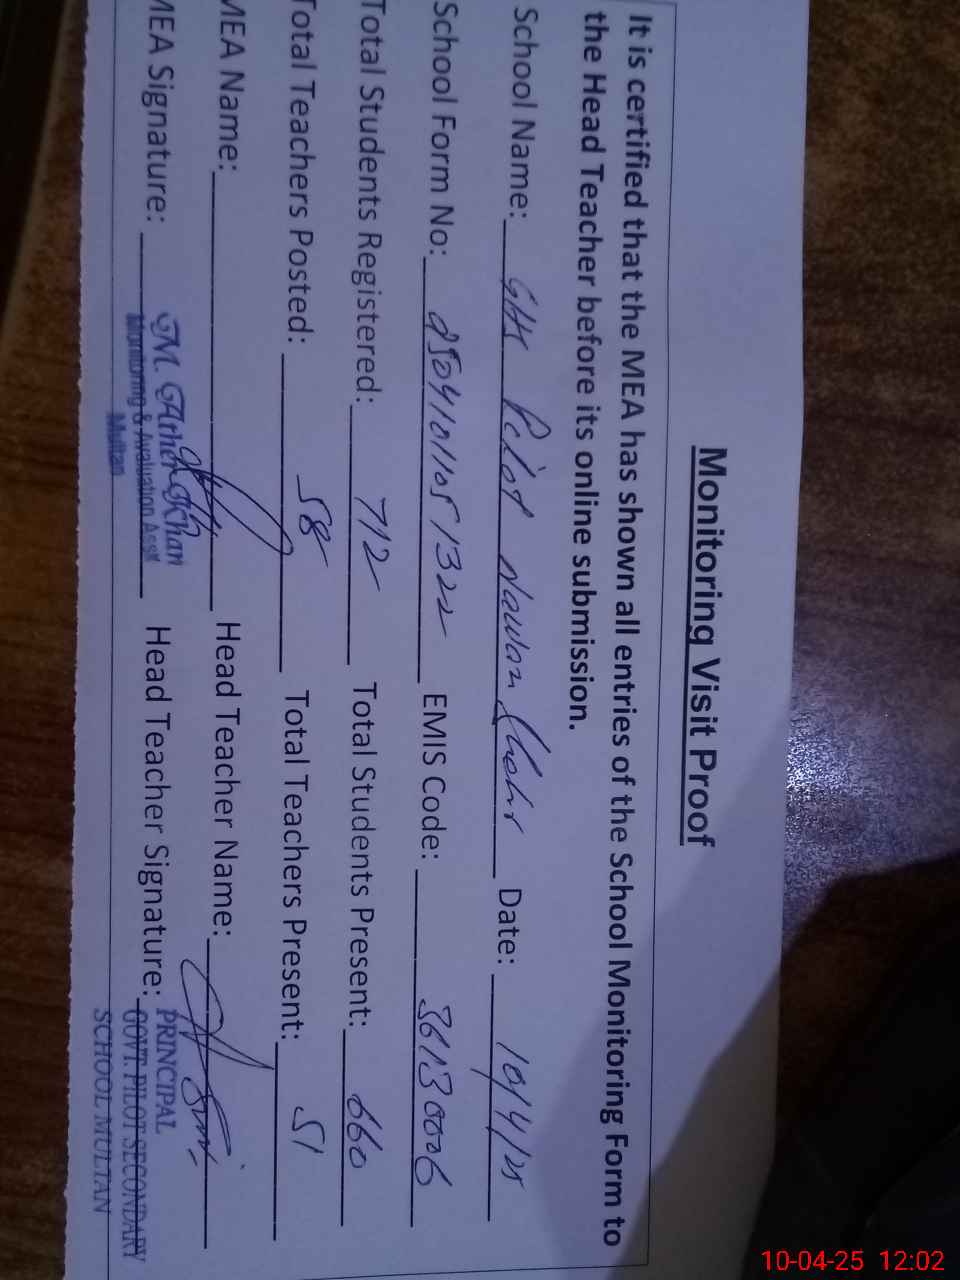 Monitoring Visit Proof
It is certified that the MEA has shown all entries of the School Monitoring Form to
the Head Teacher before its online submission.
School Name: GHS Pilot Nawan Shehr Date: 10/4/25
School Form No: EMIS Code: 36130006
Total Students Registered: 712 Total Students Present: 660
Total Teachers Posted: 58 Total Teachers Present: 51
MEA Name: Head Teacher Name:
MEA Signature: Head Teacher Signature:
M. Ather Khan
Monitoring & Avaluation Asst
Multan
PRINCIPAL
GOVT. PILOT SECONDARY
SCHOOL MULTAN
10-04-25 12:02